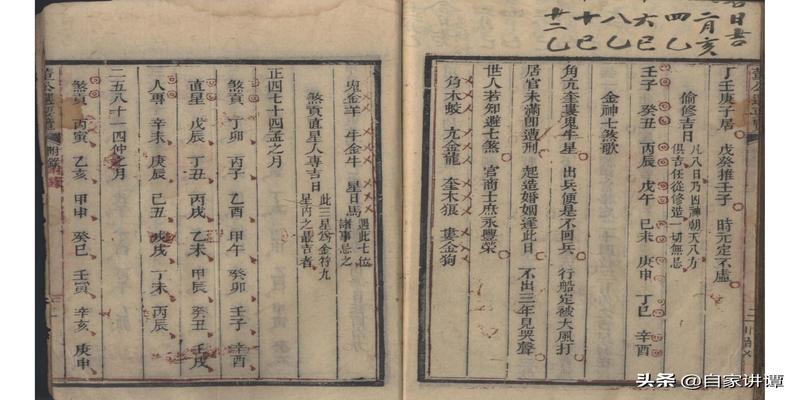 二月亥
四乙
六巳
八乙
十巳
廿二乙
丁壬庚子居 戊癸推壬子 時元定不虛
偷修吉日 凡八日乃凶神朝天八方
俱吉任從修造一切無忌
壬子 癸丑 丙辰 戊午 己未 庚申 丁巳 辛酉
金神七煞歌
角亢奎婁鬼牛星 出兵便是不回兵 行船定被大風打
居官未滿即遭刑 起造婚姻逢此日 不出三年見哭聲
世人若知避七煞 官商士庶永興榮
角木蛟 亢金龍 奎木狼 婁金狗
鬼金羊 牛金牛 星日馬 遇此七位
諸事忌之
煞貢直星人專吉日 此三星爲金符九
星內之最吉者
正四七十四孟之月
煞貢 丁卯 丙子 乙酉 甲午 癸卯 壬子 辛酉
直星 戊辰 丁丑 丙戌 乙未 甲辰 癸丑 壬戌
人專 辛未 庚辰 己丑 戊戌 丁未 丙辰
二五八十一四仲之月
煞貢 丙寅 乙亥 甲申 癸巳 壬寅 辛亥 庚申
頭条 @自家讲谭